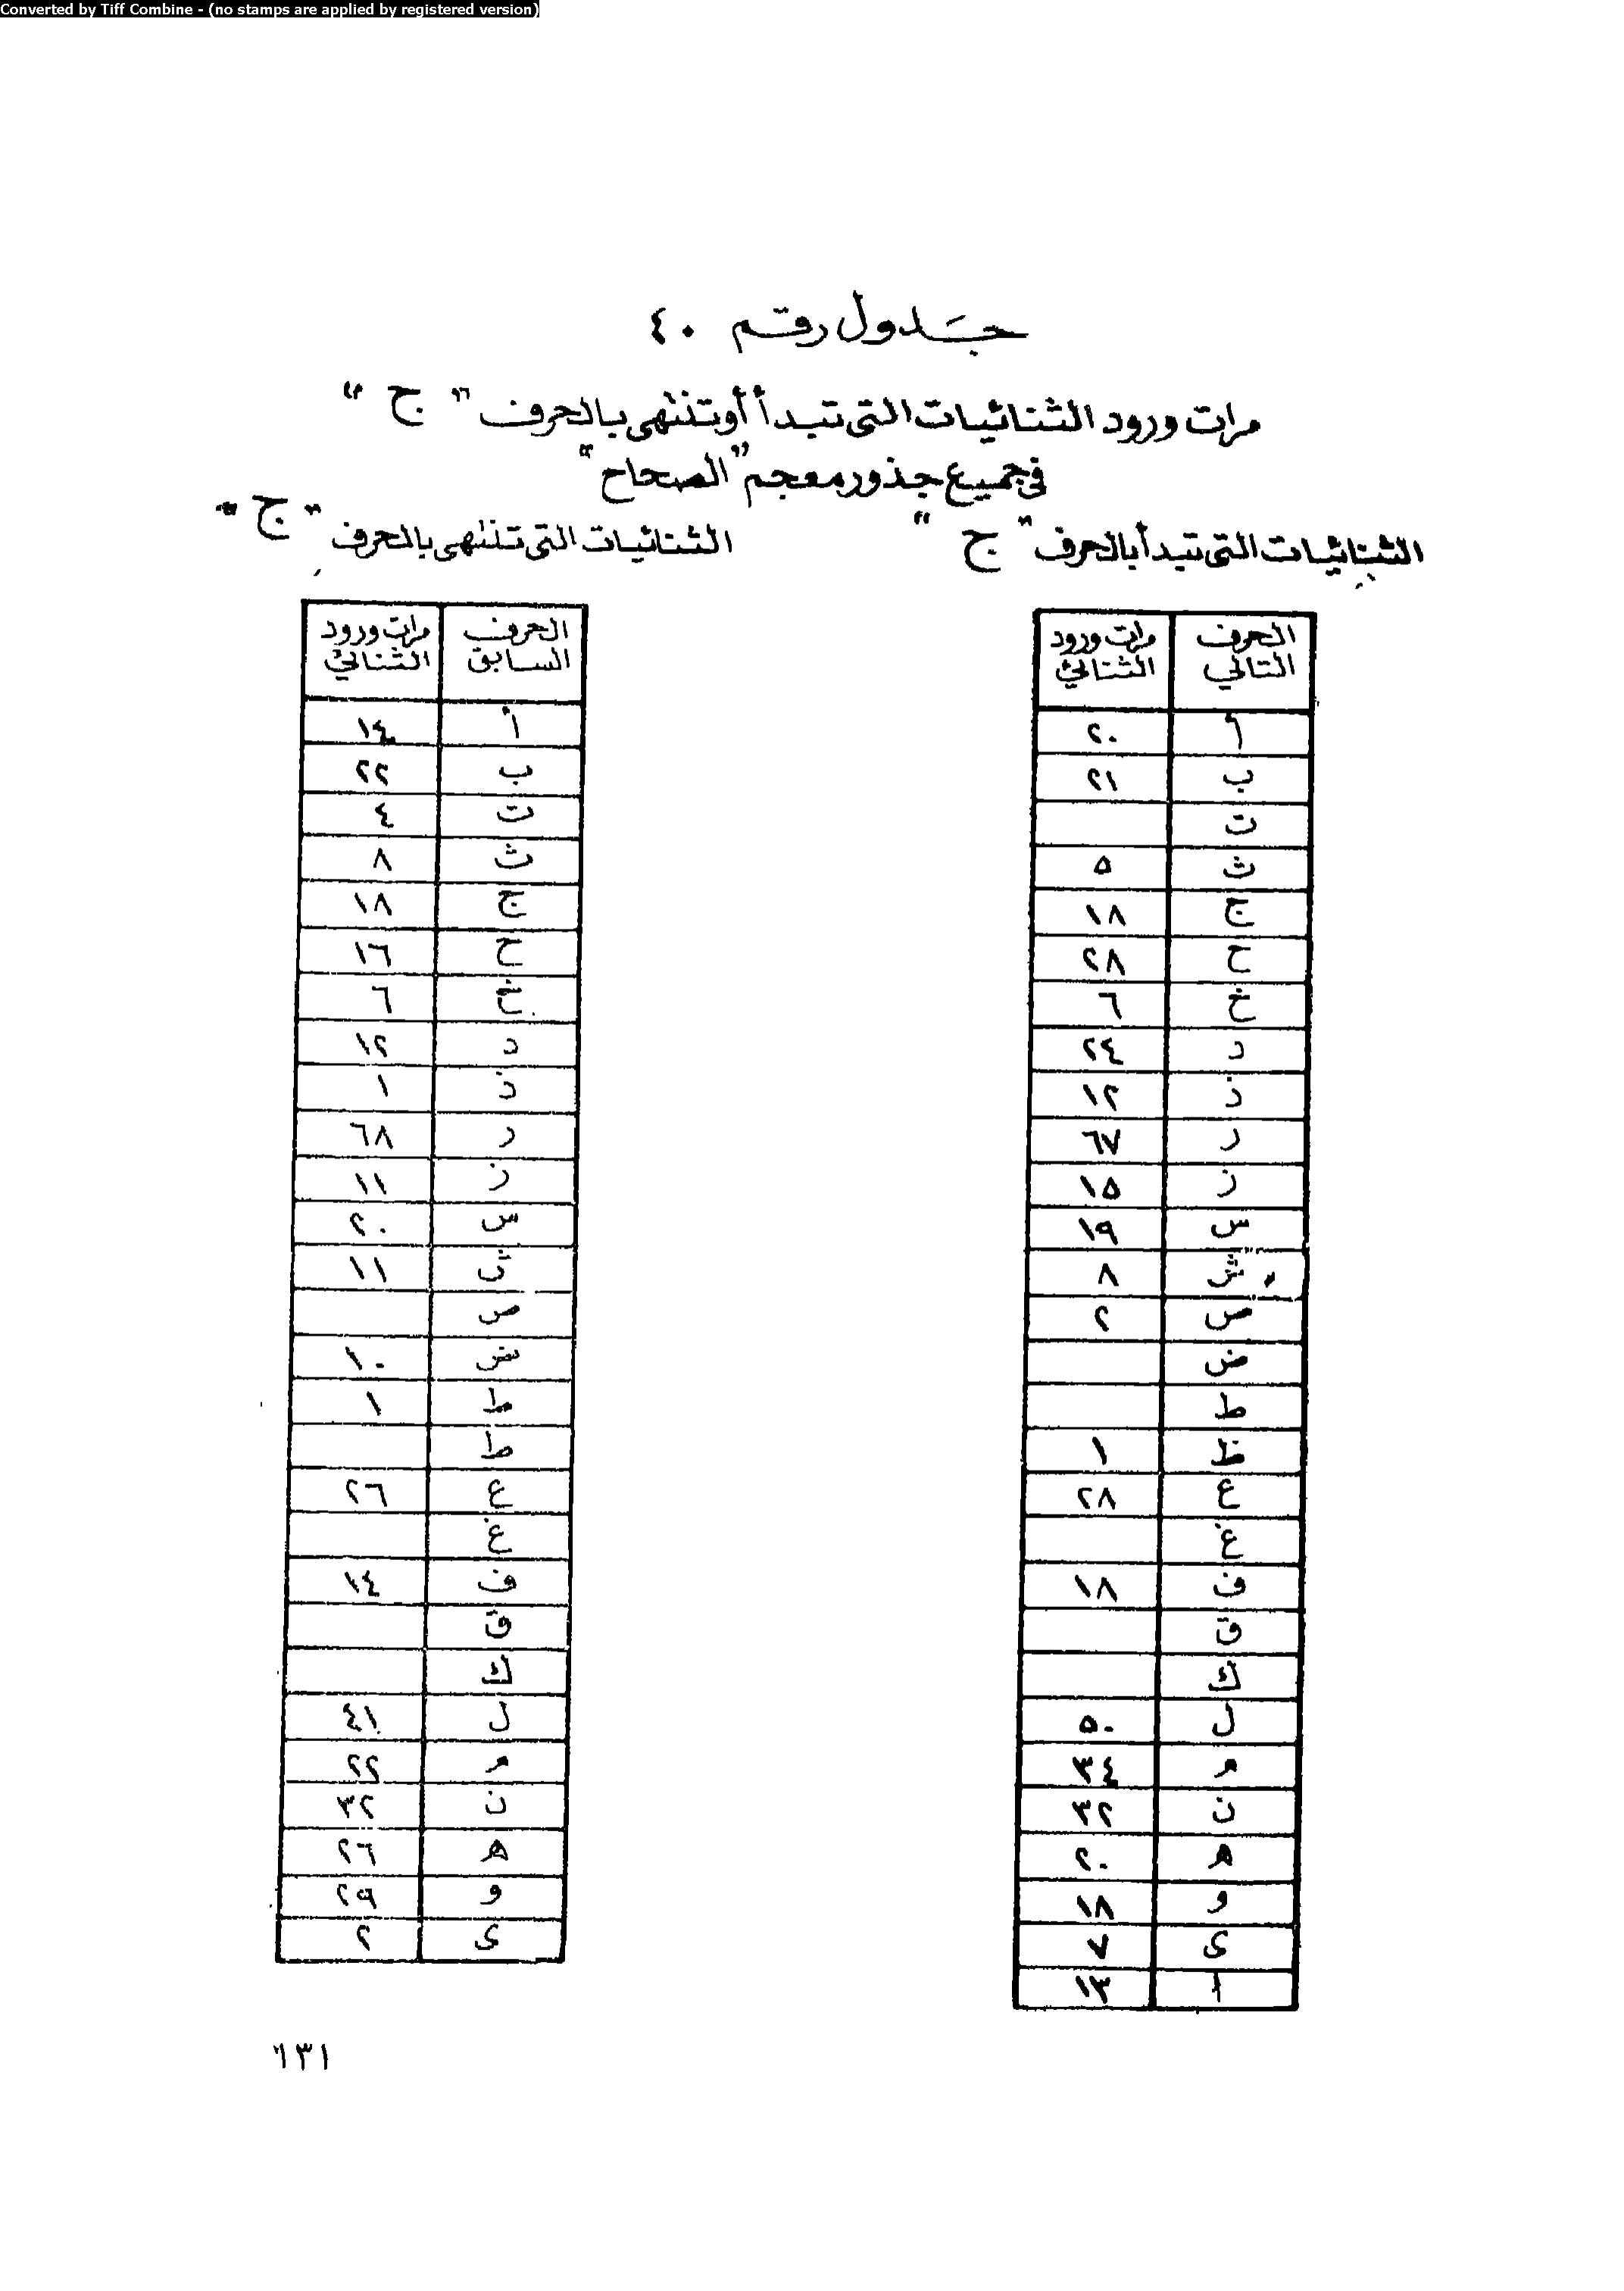 Converted by Tiff Combine - (no stamps are applied by registered version)
جدول رقم ٤٠
مرات ورود الثنائيات التى تبدأ أو تنتهى بالحرف " ج "
فى جميع جذور معجم "الصحاح"
الثنائيات التى تبدأ بالحرف " ج "
الحرف التالي مرات ورود الثنائي
أ ٢٠
ب ٢١
ت
ث ٥
ج ١٨
ح ٢٨
خ ٦
د ٢٤
ذ ١٢
ر ٦٧
ز ١٥
س ١٩
ش ٨
ص ٢
ض
ط
ظ ١
ع ٢٨
غ
ف ١٨
ق
ك
ل ٥٠
م ٣٤
ن ٣٢
ه ٢٠
و ١٨
ى ٧
ا ١٣
الثنائيات التى تنتهى بالحرف " ج "
الحرف السابق مرات ورود الثنائي
أ ١٤
ب ٢٢
ت ٤
ث ٨
ج ١٨
ح ١٦
خ ٦
د ١٢
ذ ١
ر ٦٨
ز ١١
س ٢٠
ش ١١
ص
ض ١٠
ط ١
ظ
ع ٢٦
غ
ف ١٤
ق
ك
ل ٤١
م ٢٢
ن ٣٢
ه ٢٦
و ٢٩
ى ٢
١٣١